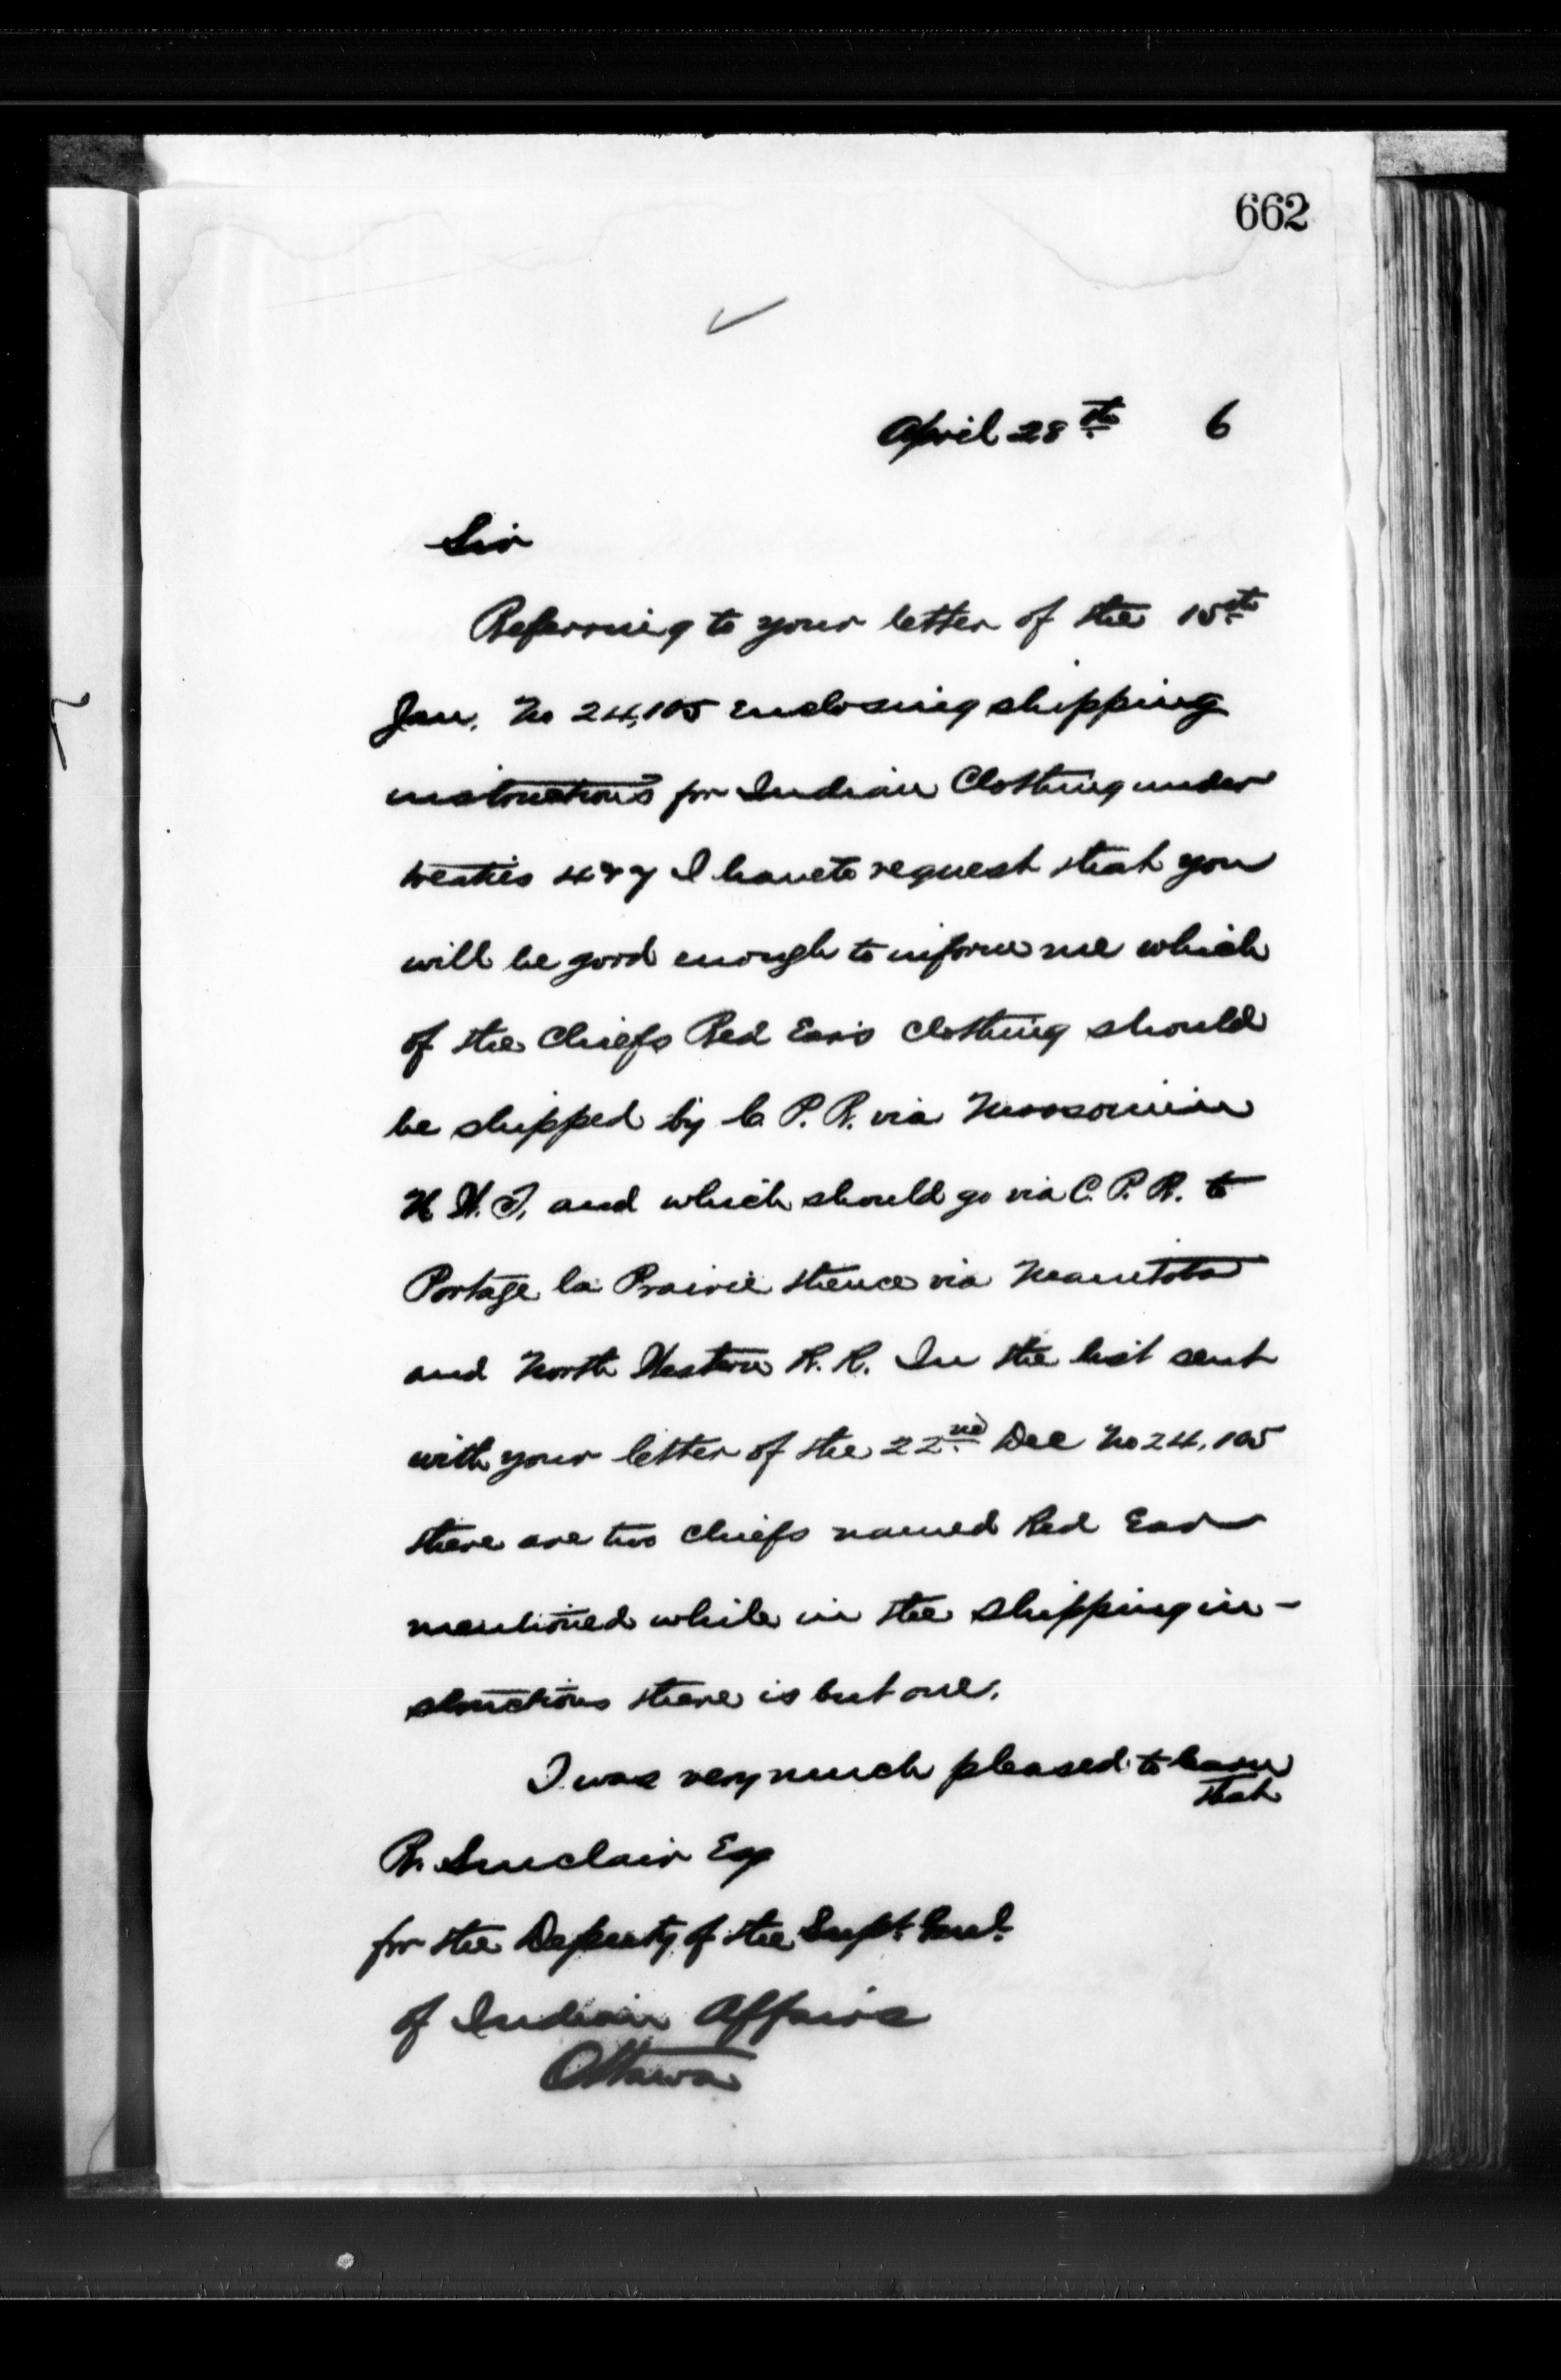 662
April 28th 6
Sir
Referring to your letter of the 15th
Jan. No 24,105 enclosing shipping
instructions for Indian Clothing under
treaties 4 & 7 I have to request that you
will be good enough to inform me which
of the Chiefs Red Ear's clothing should
be shipped by C. P. R. via Moosomin
N. W. T. and which should go via C. P. R. to
Portage la Prairie thence via Manitoba
and North Western R. R. In the list sent
with your letter of the 22nd Dec No 24,105
there are two Chiefs named Red Ear
mentioned while in the shipping in-
structions there is but one.
I was very much pleased to learn
that
R. Sinclair Esq
for the Deputy of the Supt. Genl.
of Indian Affairs
Ottawa